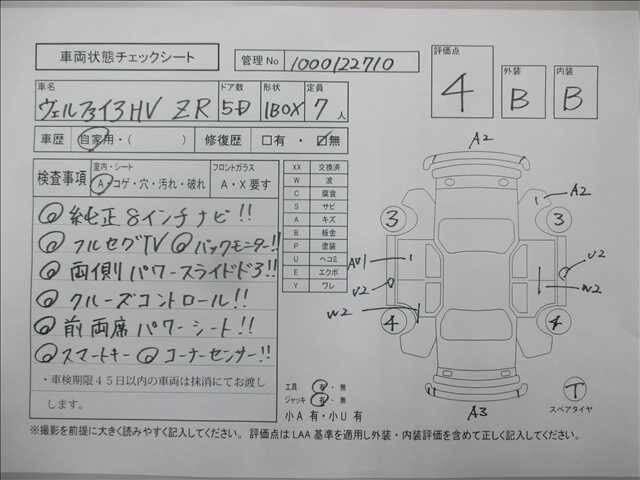 車両状態チェックシート
管理No 1000122710
評価点 4
外装 B
内装 B
車名 ヴェルファイアHV ZR
ドア数 5D
形状 1BOX
定員 7人
車歴 自家用・( ) 修復歴 □有・☑無
検査事項
室内・シート
A・コゲ・穴・汚れ・破れ
フロントガラス
A・X要す
◎純正8インチナビ!!
◎フルセグTV ◎バックモニター!!
◎両側パワースライドドア!!
◎クルーズコントロール!!
◎前両席パワーシート!!
◎スマートキー ◎コーナーセンサー!!
・車検期限45日以内の車両は抹消にてお渡し
します。
XX 交換済
W 波
C 腐食
S サビ
A キズ
B 板金
P 塗装
U ヘコミ
E エクボ
Y ワレ
A2
A2
3
3
AU1
U2
U2
W2
W2
4
4
A3
工具 有・無
ジャッキ 有・無
小A 有・小U 有
T
スペアタイヤ
※撮影を前提に大きく読みやすく記入してください。 評価点は LAA 基準を適用し外装・内装評価を含めて正しく記入してください。